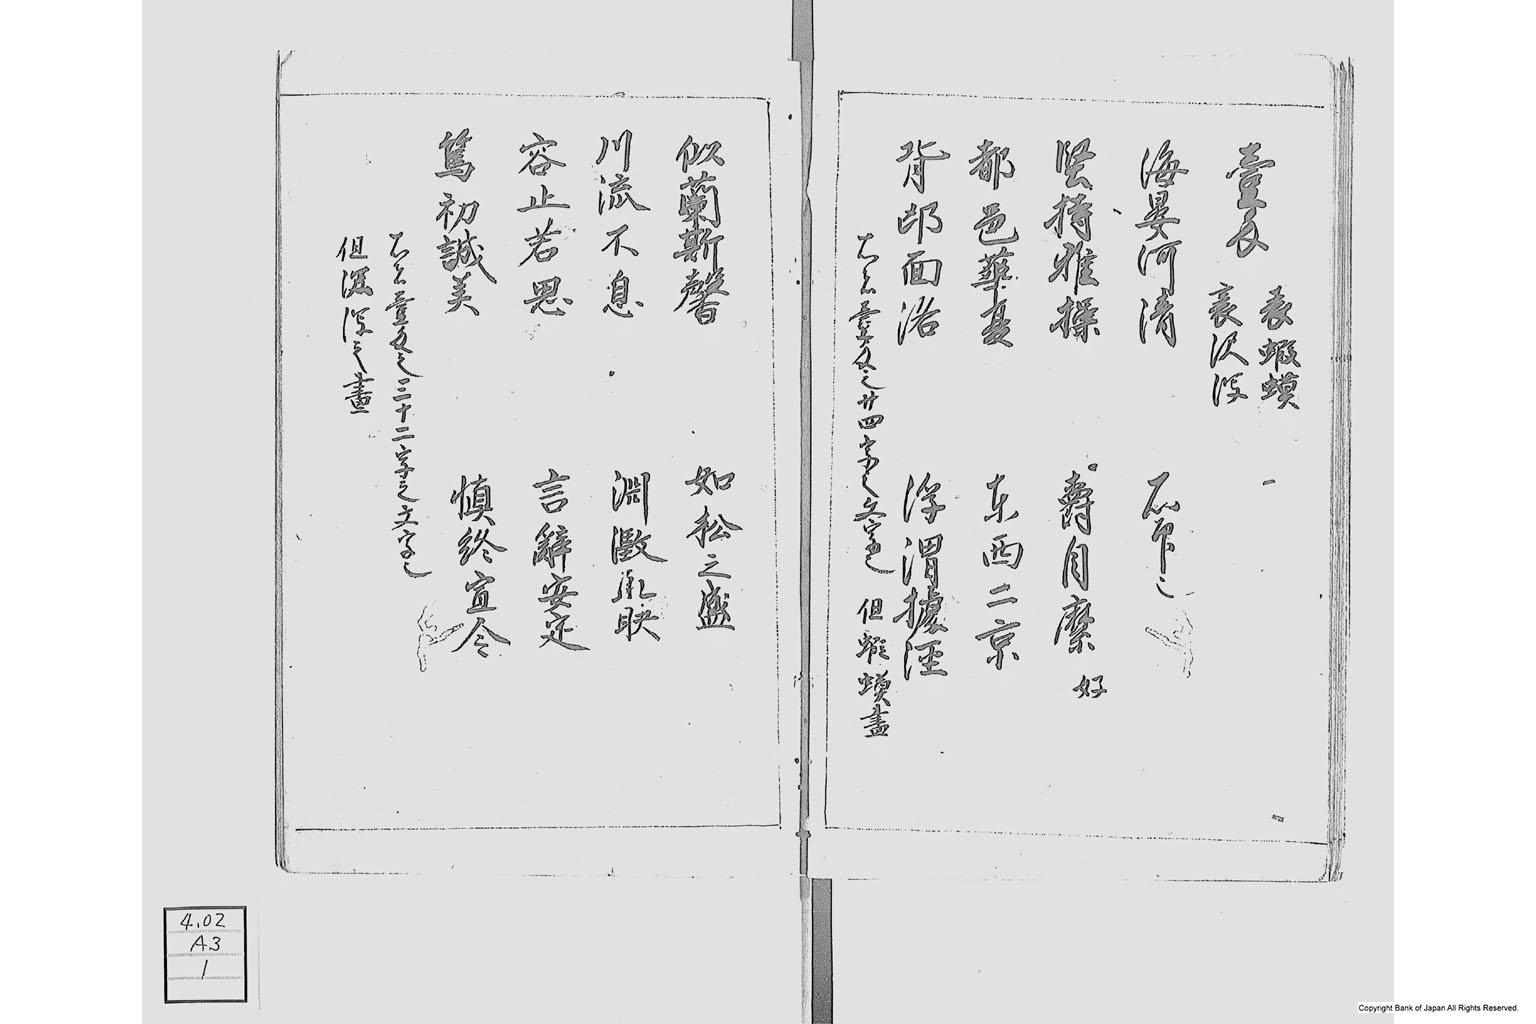 壹匁
表蝦蟆
裏沢潟
海晏河清
石印之
堅持雅操
爵自縻
好
都邑華夏
東西二京
背邙面洛
浮渭據涇
右者壹匁之廿四字之文字也
但蝦蟆畫
似蘭斯馨
如松之盛
川流不息
淵澂取映
容止若思
言辭安定
篤初誠美
慎終宜令
右者壹匁之三十二字之文字也
但沢潟之畫
4.02
A3
1
Copyright Bank of Japan All Rights Reserved.